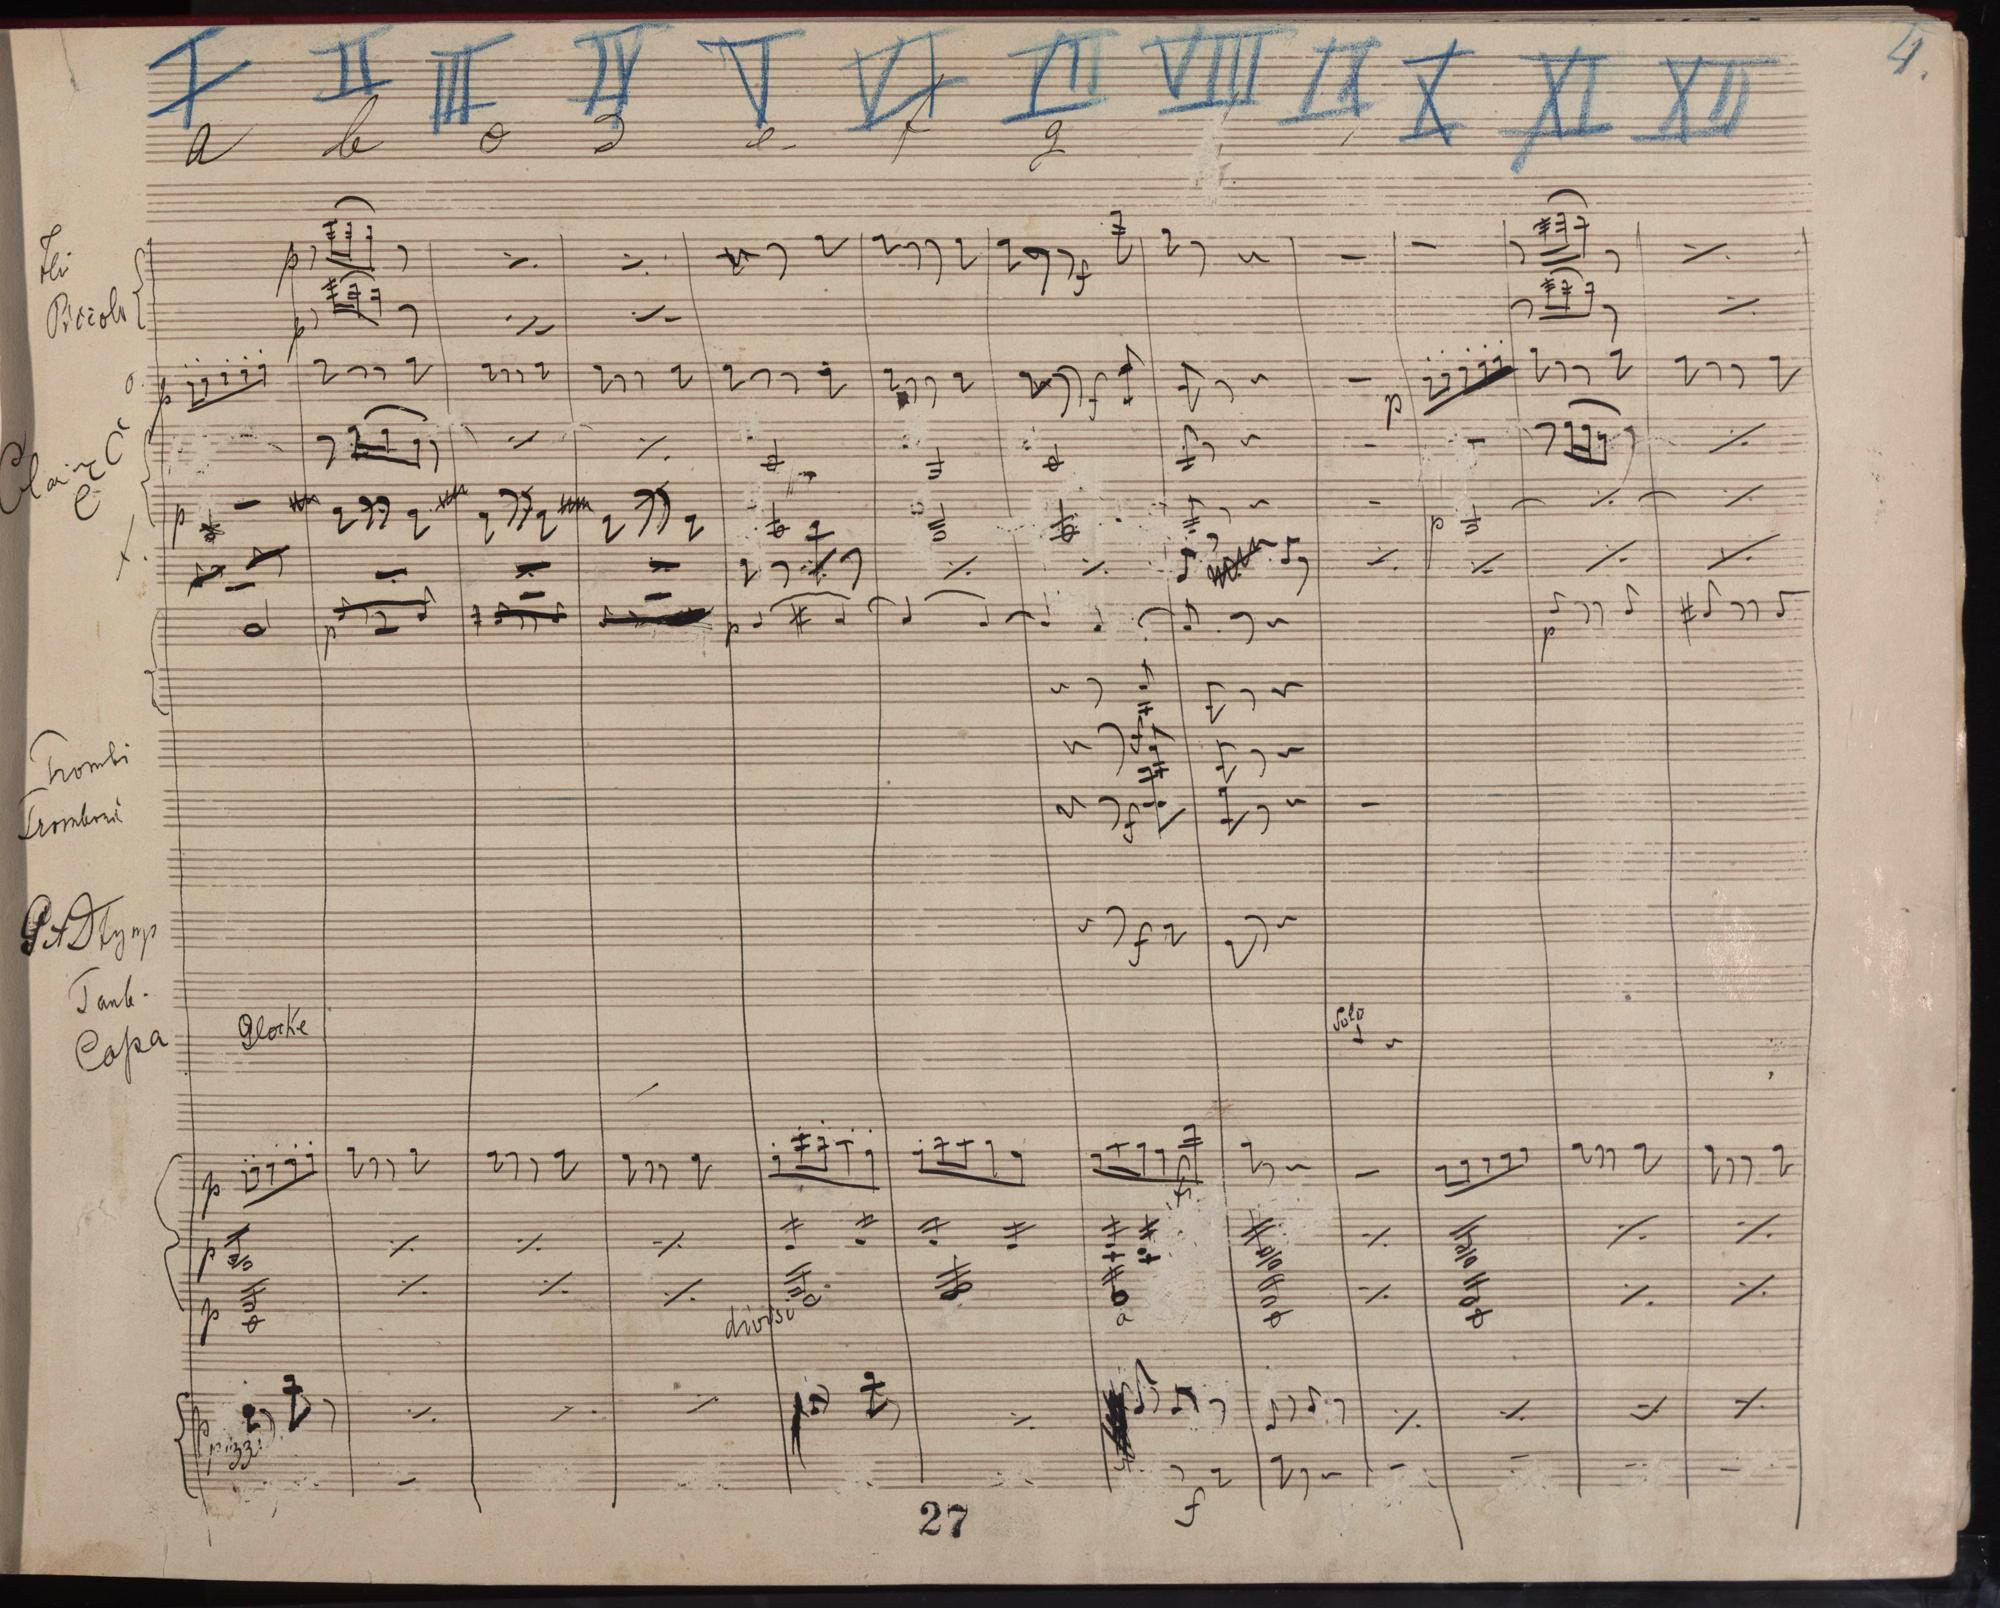 I II III IV V VI VII VIII IX X XI XII
4.
a b c d e f g
Fli
Piccoli
p
p
o.
p
f
f
p
p
p
p
p
p
p
Trombi
Tromboni
f
Tymp
f
Tamb.
Capa
Glocke
Solo
p
f
p
p
divisi
p
pizz.
f
27